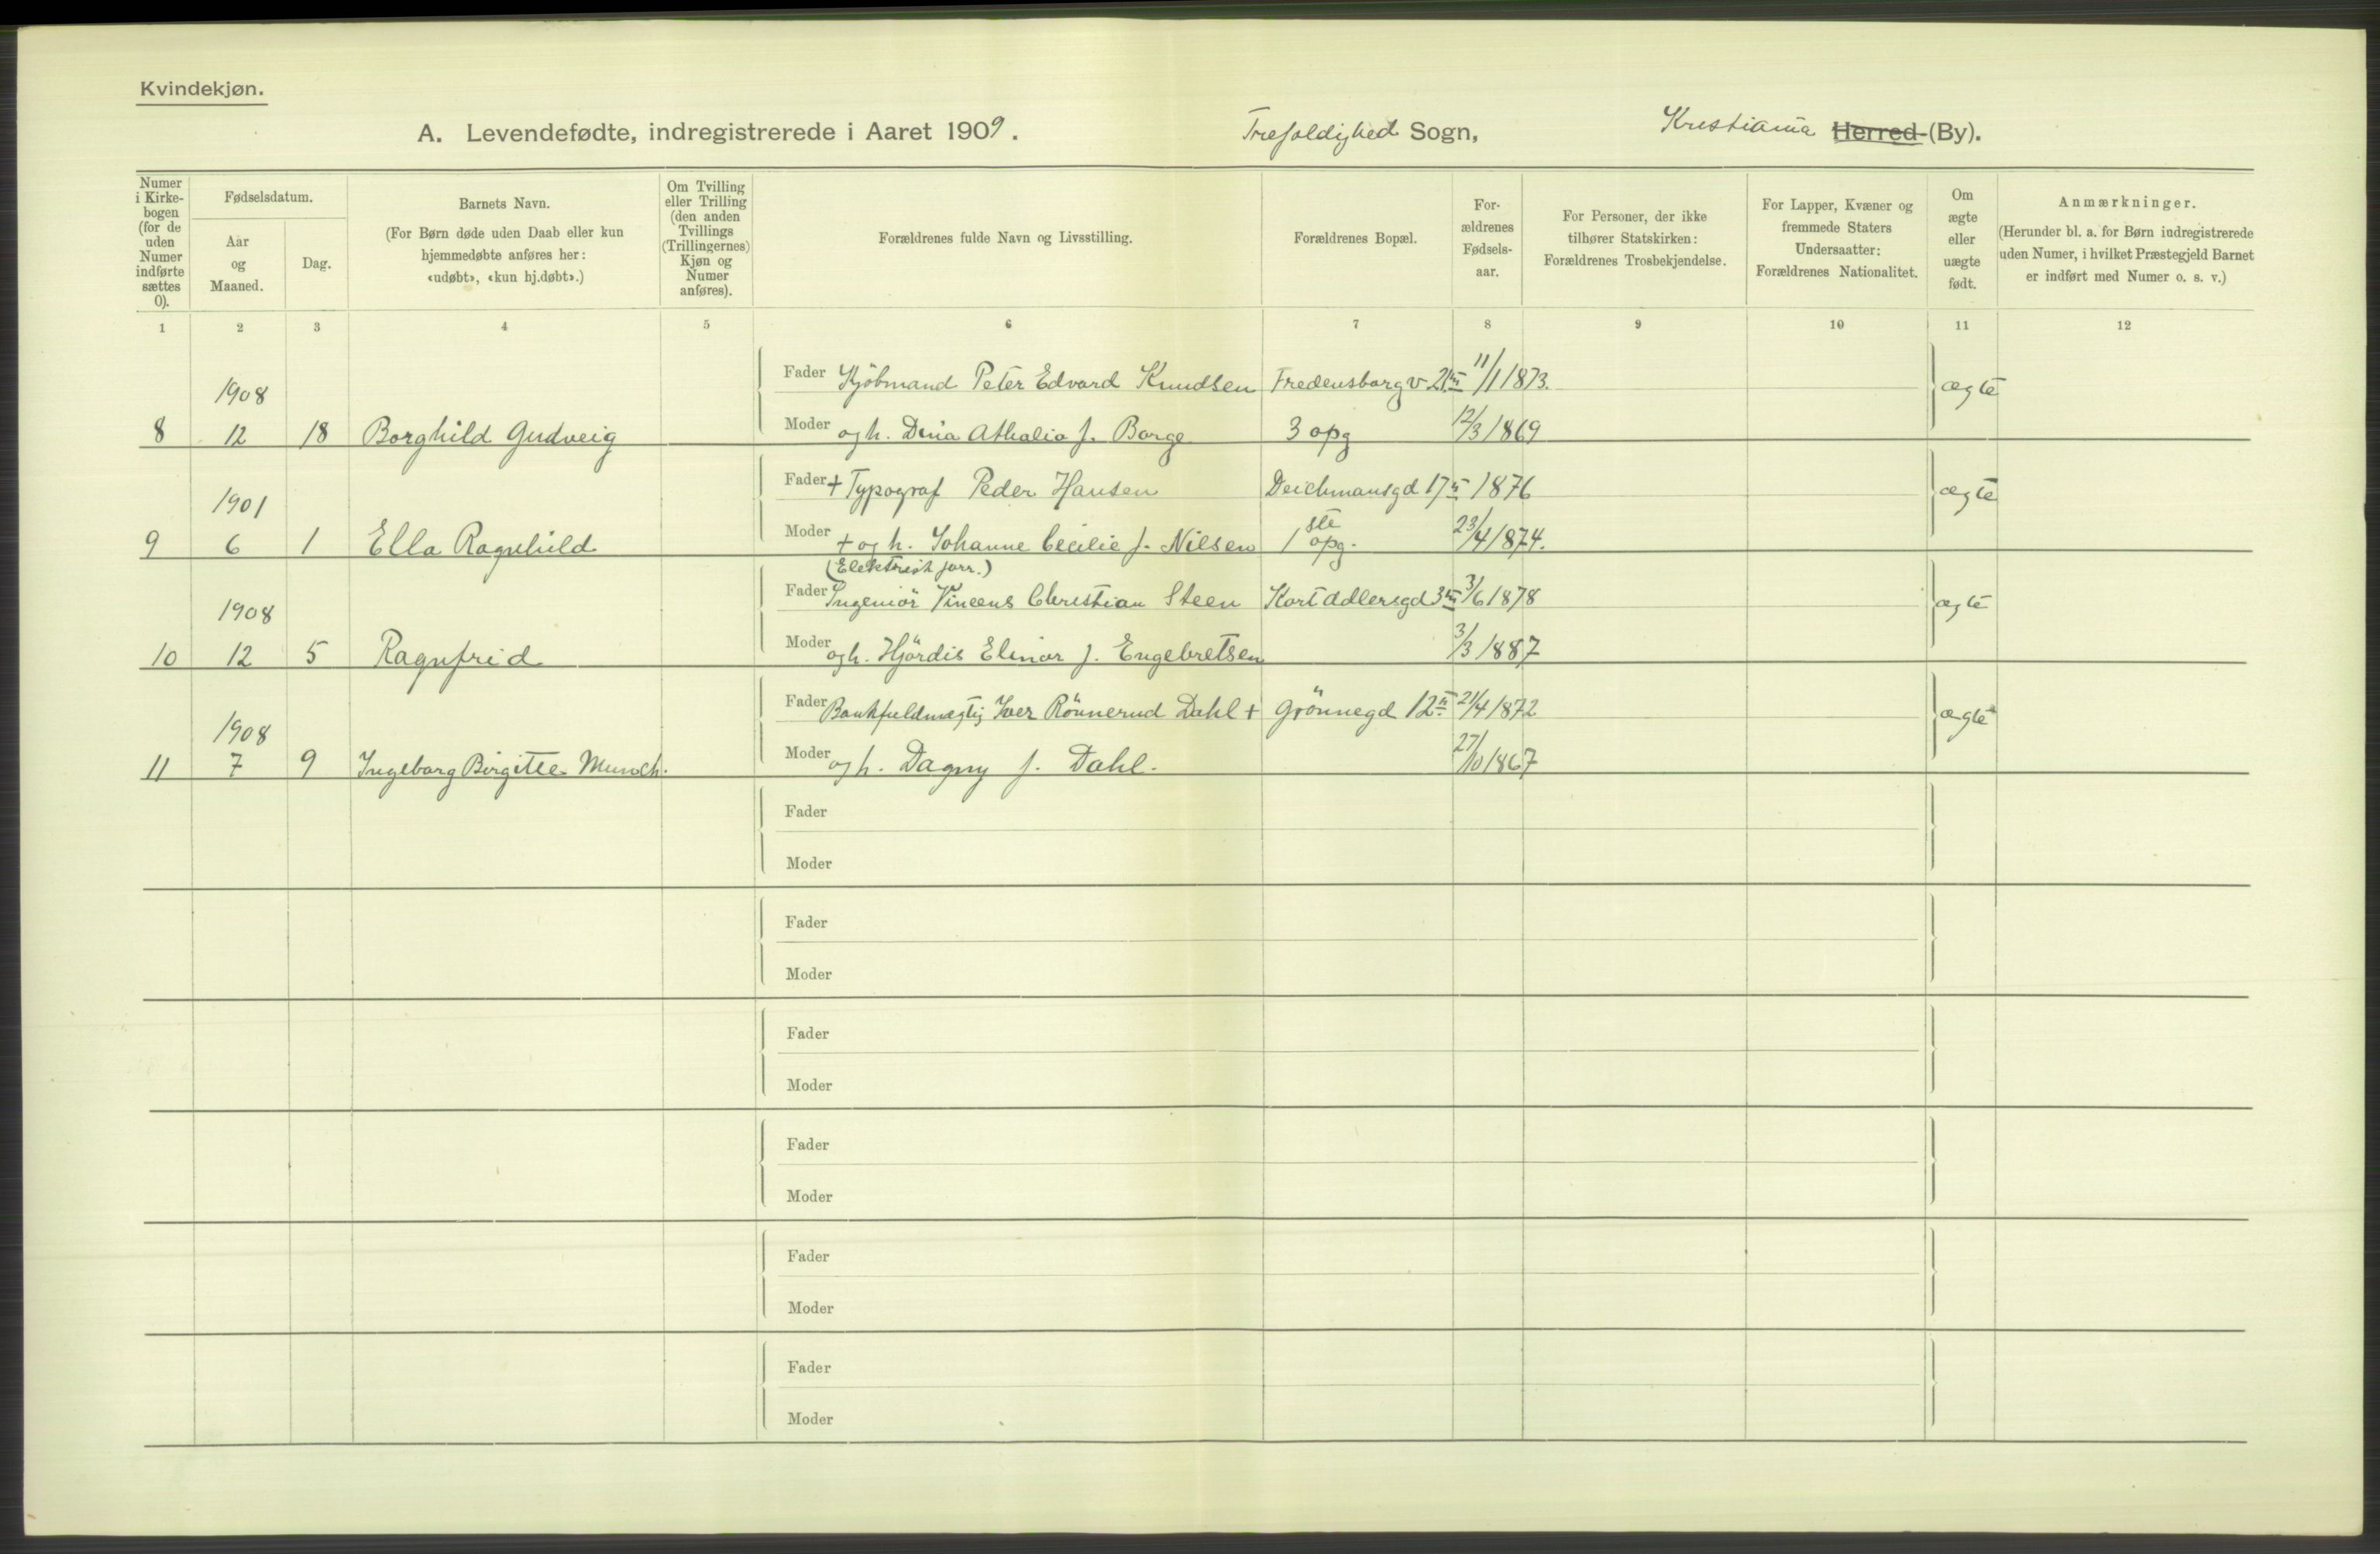 Kvindekjøn.
A. Levendefødte, indregistrerede i Aaret 1909. Trefoldighed Sogn, Kristiania Herred (By).
Numer i Kirke-bogen (for de uden Numer indførte sættes 0).
Fødselsdatum.
Aar og Maaned.
Dag.
Barnets Navn.
(For Børn døde uden Daab eller kun hjemmedøbte anføres her: «udøbt», «kun hj.døbt».)
Om Tvilling eller Trilling (den anden Tvillings (Trillingernes) Kjøn og Numer anføres).
Forældrenes fulde Navn og Livsstilling.
Forældrenes Bopæl.
For-ældrenes Fødsels-aar.
For Personer, der ikke tilhører Statskirken: Forældrenes Trosbekjendelse.
For Lapper, Kvæner og fremmede Staters Undersaatter: Forældrenes Nationalitet.
Om ægte eller uægte født.
Anmærkninger.
(Herunder bl. a. for Børn indregistrerede uden Numer, i hvilket Præstegjeld Barnet er indført med Numer o. s. v.)
1 2 3 4 5 6 7 8 9 10 11 12
1908 Fader Kjöbmand Peter Edvard Knudsen Fredensborgv 21 III 11/1 1873. ægte
8 12 18 Borghild Gudveig Moder og h. Dina Athalia f. Borge 3 opg 12/3 1869
1901 Fader + Typograf Peder Hansen Deichmansgd 17 II 1876 ægte
9 6 1 Ella Ragnhild Moder + og h. Johanne Cecilie f. Nilsen 1 ste opg. 23/4 1874.
(Elektrisk forr.)
1908 Fader Ingeniör Vincens Christian Steen Kort Adlersgd 3 III 3/6 1878 ægte
10 12 5 Ragnfrid Moder og h. Hjördis Elinor f. Engebretsen 3/3 1887
1908 Fader Bankfuldmægtig Iver Rönnerud Dahl + Grönnegd 12 II 21/4 1872 ægte
11 7 9 Ingeborg Birgitte Munch. Moder og h. Dagny f. Dahl. 27/10 1867
Fader
Moder
Fader
Moder
Fader
Moder
Fader
Moder
Fader
Moder
Fader
Moder